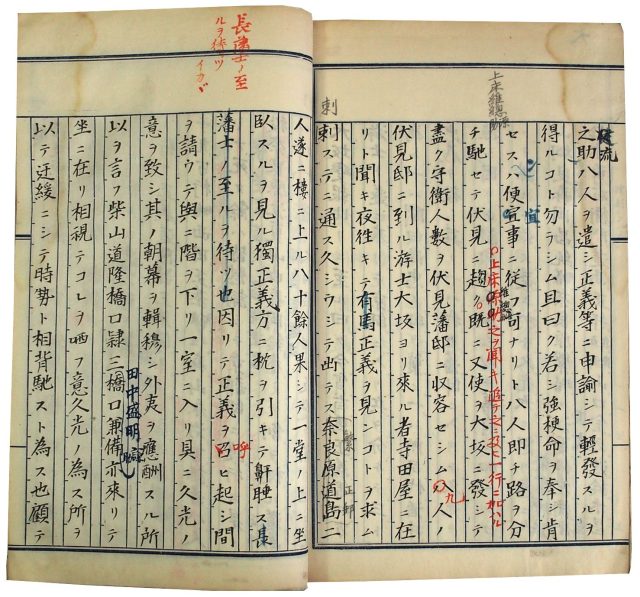 之助八人ヲ遣シ正義等ニ申諭シテ輕發スルヲ
得ルコト勿ラシム且曰ク若シ強梗命ヲ奉シ肯
セスハ便宜事ニ従フ可ナリト八人即チ路ヲ分
チ馳セテ伏見ニ趨ク既ニ又使ヲ大坂ニ發シテ
盡ク守衛人數ヲ伏見藩邸ニ収容セシム八人ノ
伏見邸ニ到ル游士大坂ヨリ來ル者寺田屋ニ在
リト聞キ夜往キテ有馬正義ヲ見ンコトヲ求ム
刺ステニ通ス久シウシテ出テス奈良原道島二
流
宜
上床
之ヲ聞キ追テ
一行ニ加ハル
九
刺
繁
正邦
人遂ニ樓ニ上ル八十餘人果シテ一堂ノ上ニ坐
臥スルヲ見ル獨正義方ニ枕ヲ引キテ鼾睡ス長
藩士ノ至ルヲ待ツ也因リテ正義ヲ呂ヒ起シ間
ヲ請ウテ與ニ階ヲ下リ一室ニ入リ具ニ久光ノ
意ヲ致シ其ノ朝幕ヲ輯穆シ外夷ヲ應酬スル所
以ヲ言フ柴山道隆橋口隷三橋口兼備亦來リテ
坐ニ在リ相視テコレヲ哂フ意久光ノ為ス所ヲ
以テ迂緩ニシテ時勢ト相背馳スト為ス也顧テ
長藩士ノ至
ルヲ待ツ
イカヾ
呼
田中盛明